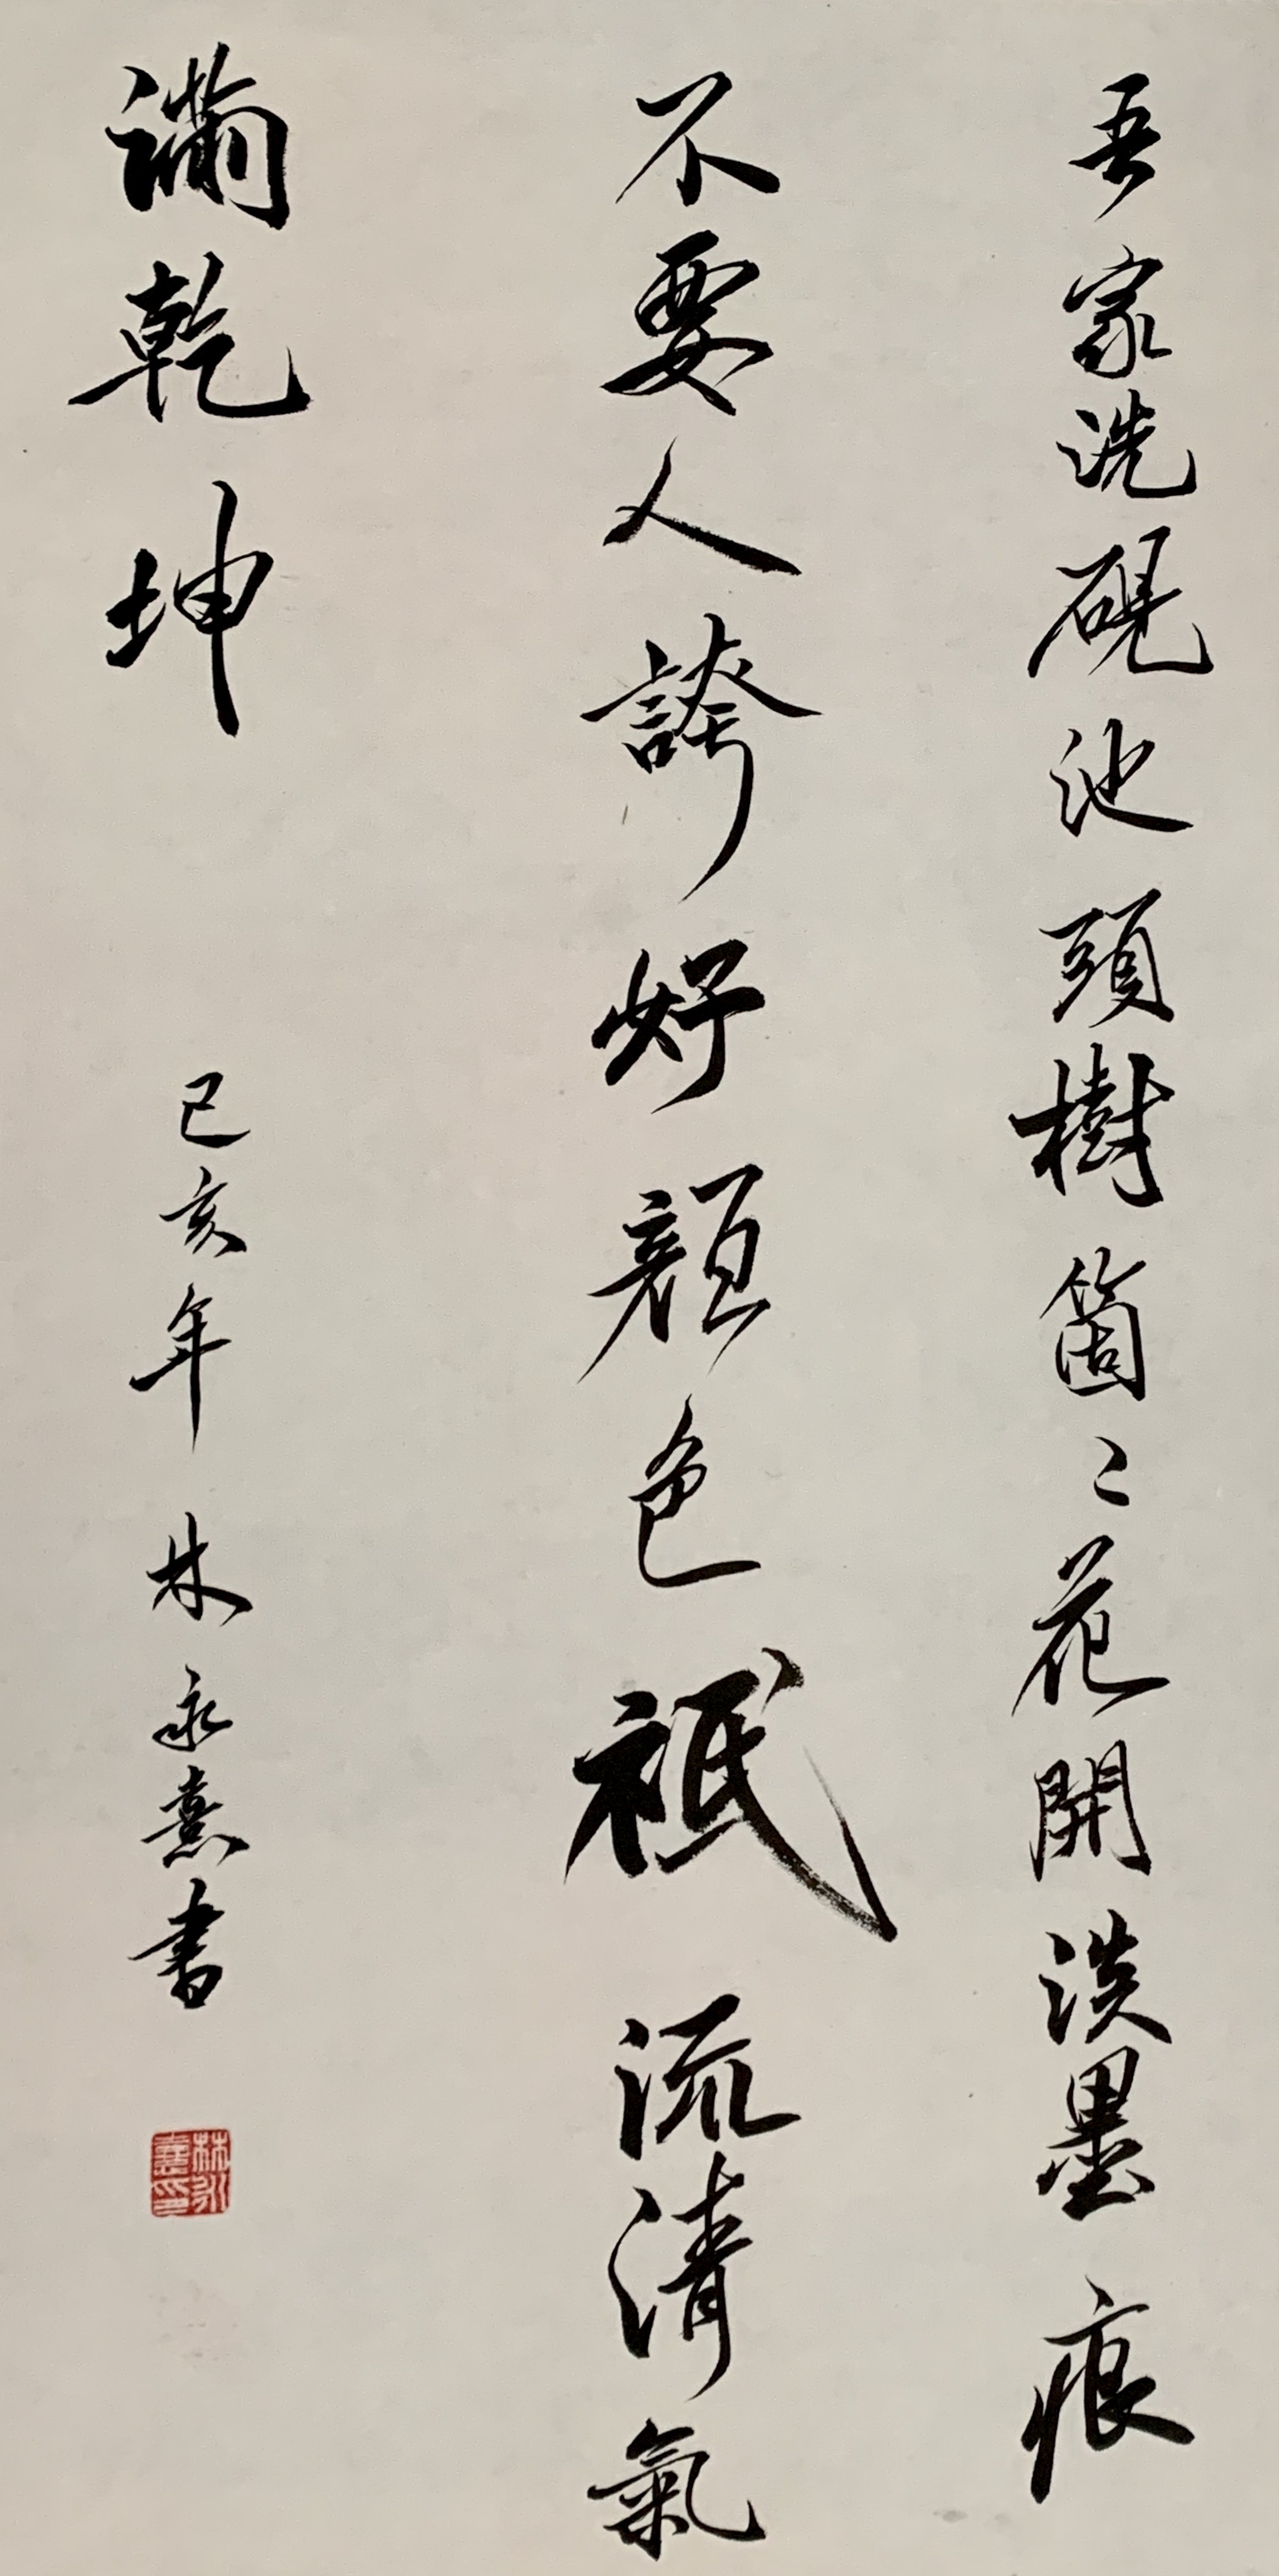 吾家洗硯池頭樹箇〻花開淡墨痕
不要人誇好顏色祗流清氣
滿乾坤
己亥年 林永熹書
林永熹印